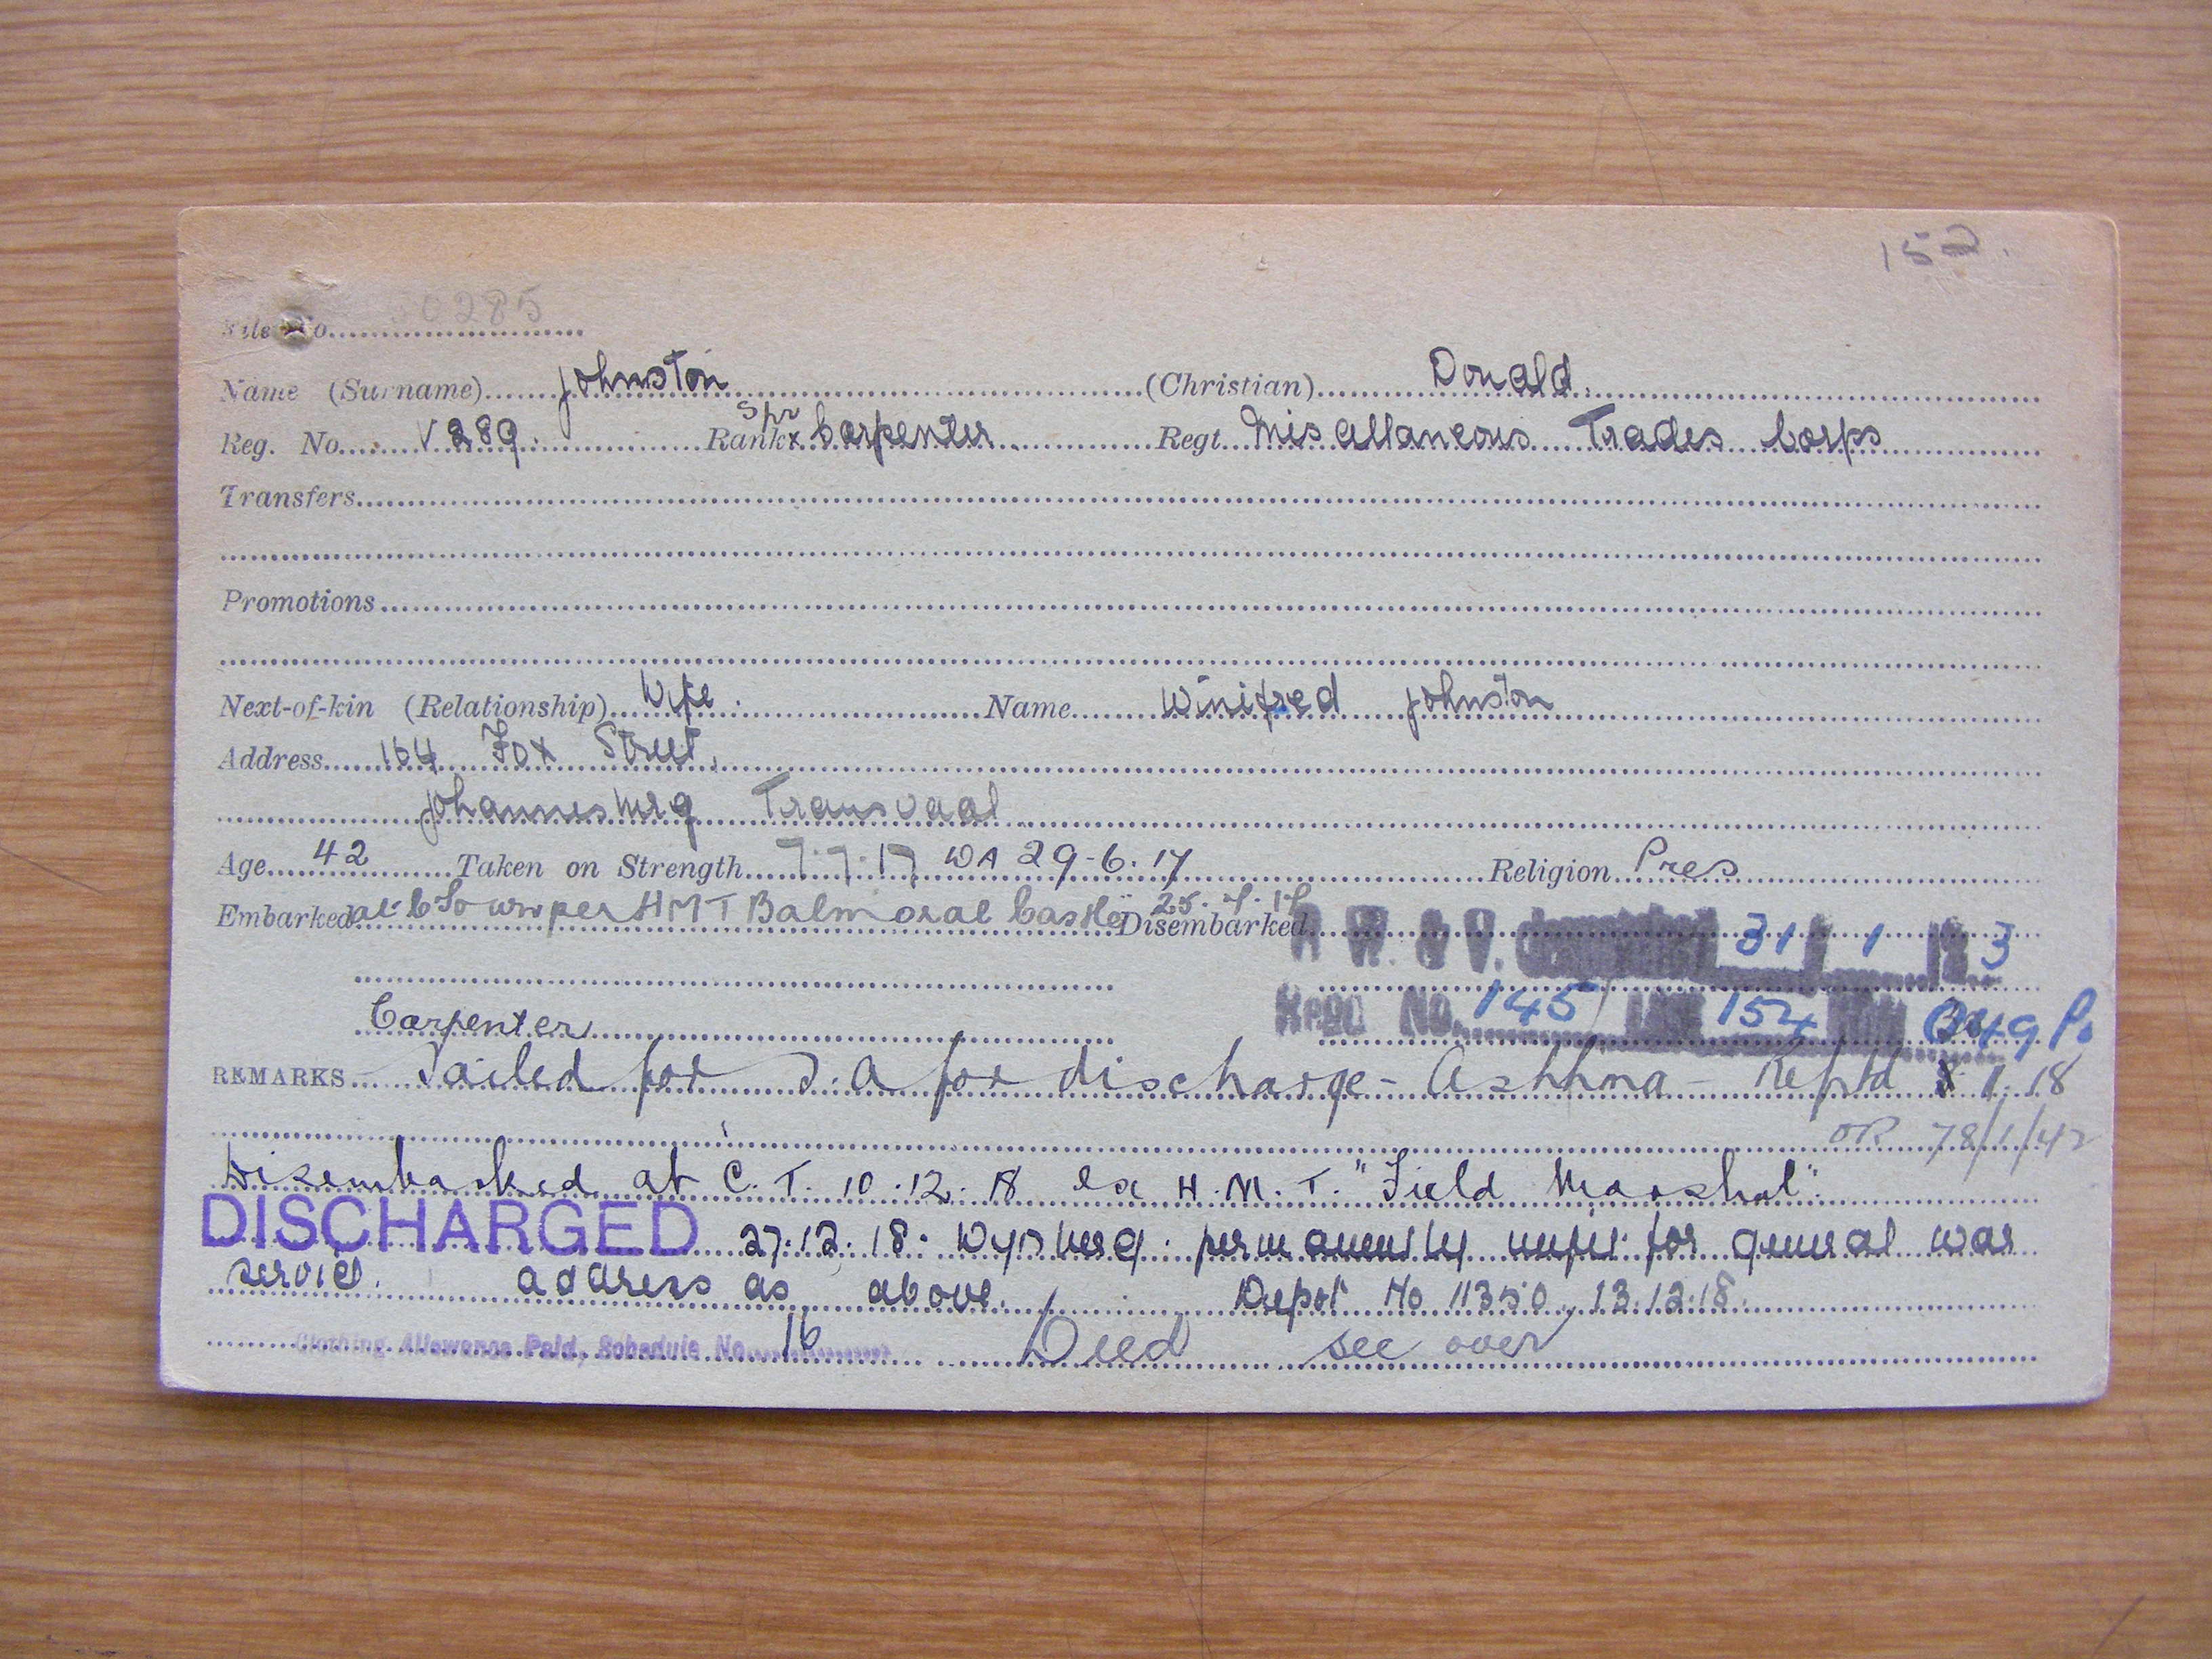 152.
File No. 0285
Name (Surname) Johnston (Christian) Donald.
Spr
Reg. No. V 289. Rank x Carpenter Regt. Miscellaneous Trades Corps
Transfers
Promotions
Next-of-kin (Relationship) Wife. Name Winifred Johnston
Address 164 Fox Street,
Johannesburg Transvaal
Age 42 Taken on Strength 7.7.17 WA 29-6.17 Religion Pres
Embarked at C Town per HMT Balmoral Castle 25.7.17 Disembarked
B. W. & V. 31 1 3
Carpenter
Reqn No. 145 154
REMARKS Sailed for S.A for discharge - Asthma - Reptd 1.18
OR 78/1/42
Disembarked at C.T. 10.12.18 Ex H.M.T. "Field Marshal".
DISCHARGED 27.12.18. Wynberg. permanently unfit for general war
service. address as above. Depot No 11350, 13.12.18.
Clothing Allowance Paid, Schedule No. 16 Deed see over